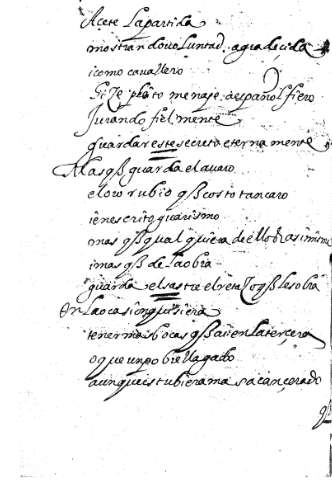 Açete Lapartida
mostran do vo Luntad, agradeçida
i como cavallero
hiçe pleito menaje a español y fiero
Jurando fielmente
guardar este secreto eternamente
Mas q̃ guarda el avaro
el oro rubio q̃ costo tan caro
i en escrito guarismo
mas q̃ qual quiera de ellos asi mismo
i mas q̃ de la obra
guarda el sastre el reta q̃ le sobra
En la ocasion quisiera
tener mas bocas q̃ ai en la terçera
o que un pobre llagado
aunque estubiera mas acançerado